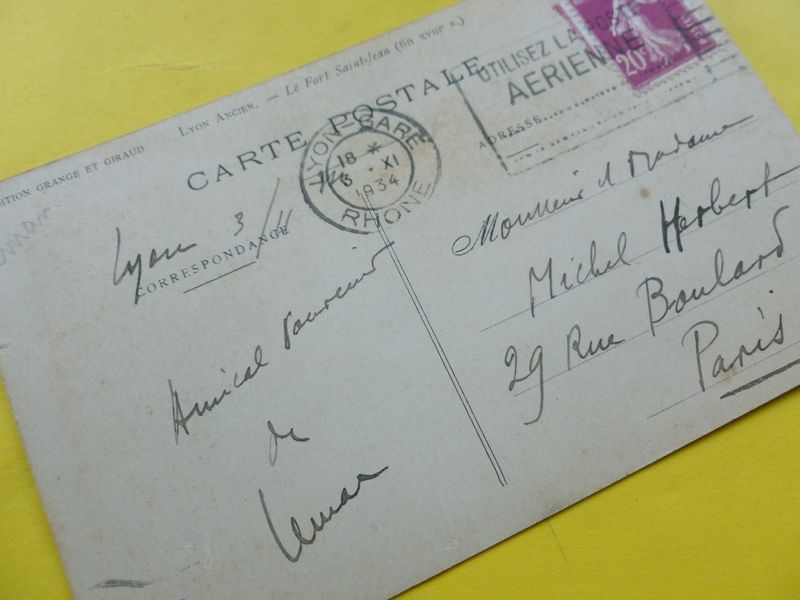 LYON ANCIEN. — Le Fort Saint-Jean (fin XVIIIe s.)
ITION GRANGE ET GIRAUD
CARTE POSTALE
UTILISEZ LA POSTE
AERIENNE
20c
LYON-GARE
18 *
3 · XI
1934
RHONE
ADRESSE
Lyon 3/11
CORRESPONDANCE
Amical souvenir
de
Monsieur & Madame
Michel Herbert
29 Rue Boulard
Paris